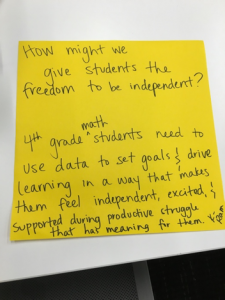 How might we
give students the
freedom to be independent?
4th grade math students need to
use data to set goals & drive
learning in a way that makes
them feel independent, excited, &
supported during productive struggle
that has meaning for them.